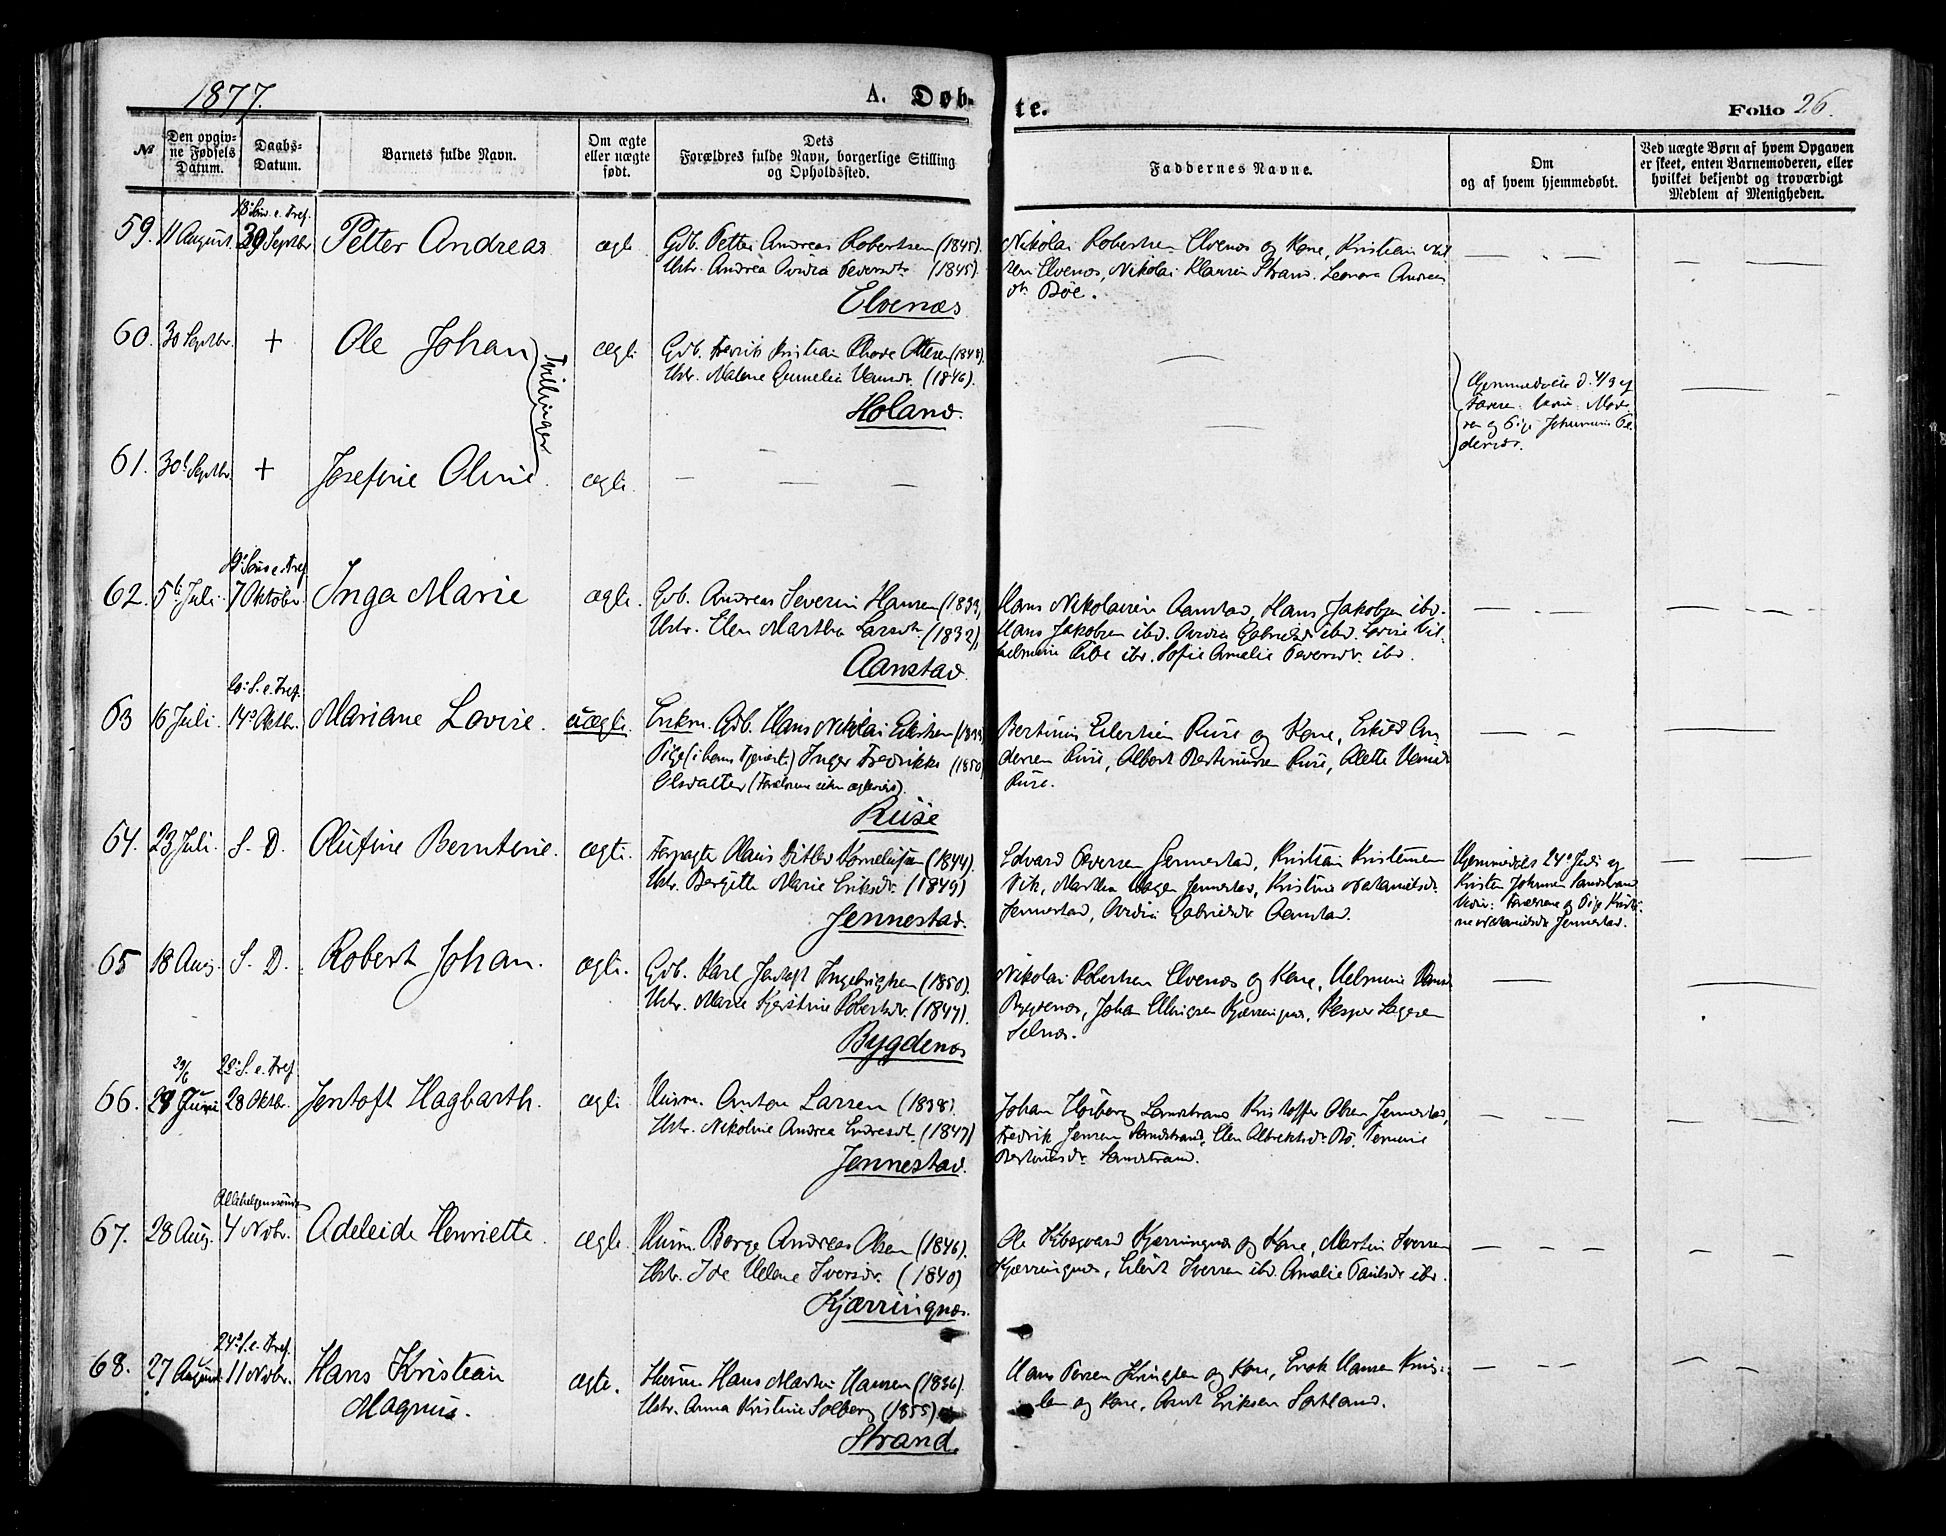 1877.
A. Døb-
te.
Folio 26.
№
Den opgiv-
ne Fødsels
Datum.
Daabs-
Datum.
Barnets fulde Navn.
Om ægte
eller uægte
født.
Dets
Forældres fulde Navn, borgerlige Stilling
og Opholdssted.
Faddernes Navne.
Om
og af hvem hjemmedøbt.
Ved uægte Børn af hvem Opgaven
er skeet, enten Barnemoderen, eller
hvilket bekjendt og troværdigt
Medlem af Menigheden.
59. 11 August 18de Sønd. e. Tref. 30 Septbr. Petter Andreas ægte
Gdb. Petter Andreas Robertsen (1845).
Hstr. Andrea Ovidia Pedersdtr. (1845).
Elvenæs
Nikolai Robertsen Elvenæs og Kone, Kristian
Elvenæs, Nikolai Klausen Strand. Leonora Andreas
dtr Bøe.
60. 30 Septbr. + Ole Johan ægte
Gdb. Fredrik Kristian Rhode Ottesen (1848).
Hstr. Malene Cornelia Hansdtr. (1846).
Holand.
Tvillinger
Hjemmedøbte d.
Faderen.
ren og Pige
61. 30 Septbr. + Josefine Oline ægte
62. 5te Juli 19de Sønd e. Tref 7 Oktober Inga Marie ægte.
Gdb. Andreas Severin Hansen (1833)
Hstr. Elen Martha Larsdtr (1832),
Aanstad.
Hans Nikolaisen Aanstad, Hans Jakobsen ibd.
Hans Jakobsen ibd. Ovidia Gabrielsdtr ibd. Lovise Vil-
helmine ibd. Sofie Amalie Pedersdtr. ibd.
63 16 Juli. 20de S. e. Tref. 14de Oktbr. Mariane Lovise. uægte.
Enkm. Gdb. Hans Nikolai Eilertsen
Pige (i hans Tjeneste) Inger Fredrikke (1850)
Olsdatter
Ruse
Bertinus Eilertsen Ruse og Kone, Eskild An-
dersen Ruse, Albert Bertinussen Ruse, Alette Hansdtr
Ruse.
64. 23 Juli. S. D. Olufine Berntine. ægte.
Forpagter Hans Ditlev Korneliussen (1844).
Hstr. Bergitte Marie Eriksdtr. (1849)
Jennestad.
Edvard Pedersen Jennestad, Kristian Kristensen
Vik, Martha Hagen Jennestad, Kristine Natanielsdtr
Jennestad, Ovidia Gabrielsdtr Aanstad.
Hjemmedøbt 24de Juli af
Kristen Johnsen Sandstrand
Vidner: Forældrene og Pige Kristi-
ne Natanielsdtr Jennestad.
65 18 Aug. S. D. Robert Johan. ægte.
Gdb. Karl Jentoft Ingebrigtsen (1850).
Hstr. Marie Kjerstine Robertsdtr. (1847).
Bygdenæs
Nikolai Robertsen Elvenæs og Kone, Helmine Hansdtr
Bygdenæs, Johan Ellingsen Kjærringnæs, Kasper
Selnæs.
66. 29/6 29 Juni 22de S. e. Tref 28 Oktbr. Jentoft Hagbarth. ægte
Husm. Anton Larsen (1838).
Hstr. Nikoline Andrea Endresdtr. (1847)
Jennestad.
Johan Høiberg Sandstrand Kristoffer Olsen Jennestad,
Fredrik Jensen Sandstrand, Elen Albrektsdtr Bø,
Bertinusdtr Sandstrand.
67. 28 Aug. Allehelgenssøndag 4 Novbr. Adeleide Henriette. ægte.
Husm. Borge Andreas Olsen (1846).
Hstr. Ide Helene Iversdtr. (1840)
Kjærringnæs.
Ole Kjærringnæs og Kone, Martin Iversen
Kjærringnæs, Eilert Iversen ibd. Amalie Paulsdtr ibd.
68. 27 August 24de S. e. Tref. 11 Novbr. Hans Kristian
Magnus. ægte.
Husm. Hans Martin Hansen (1836).
Hstr. Anna Kristine Solberg (1855)
Strand.
Hans Persen Kringlen og Kone, Erik Hansen Kring-
len og Kone, Arnt Eriksen Sortland.